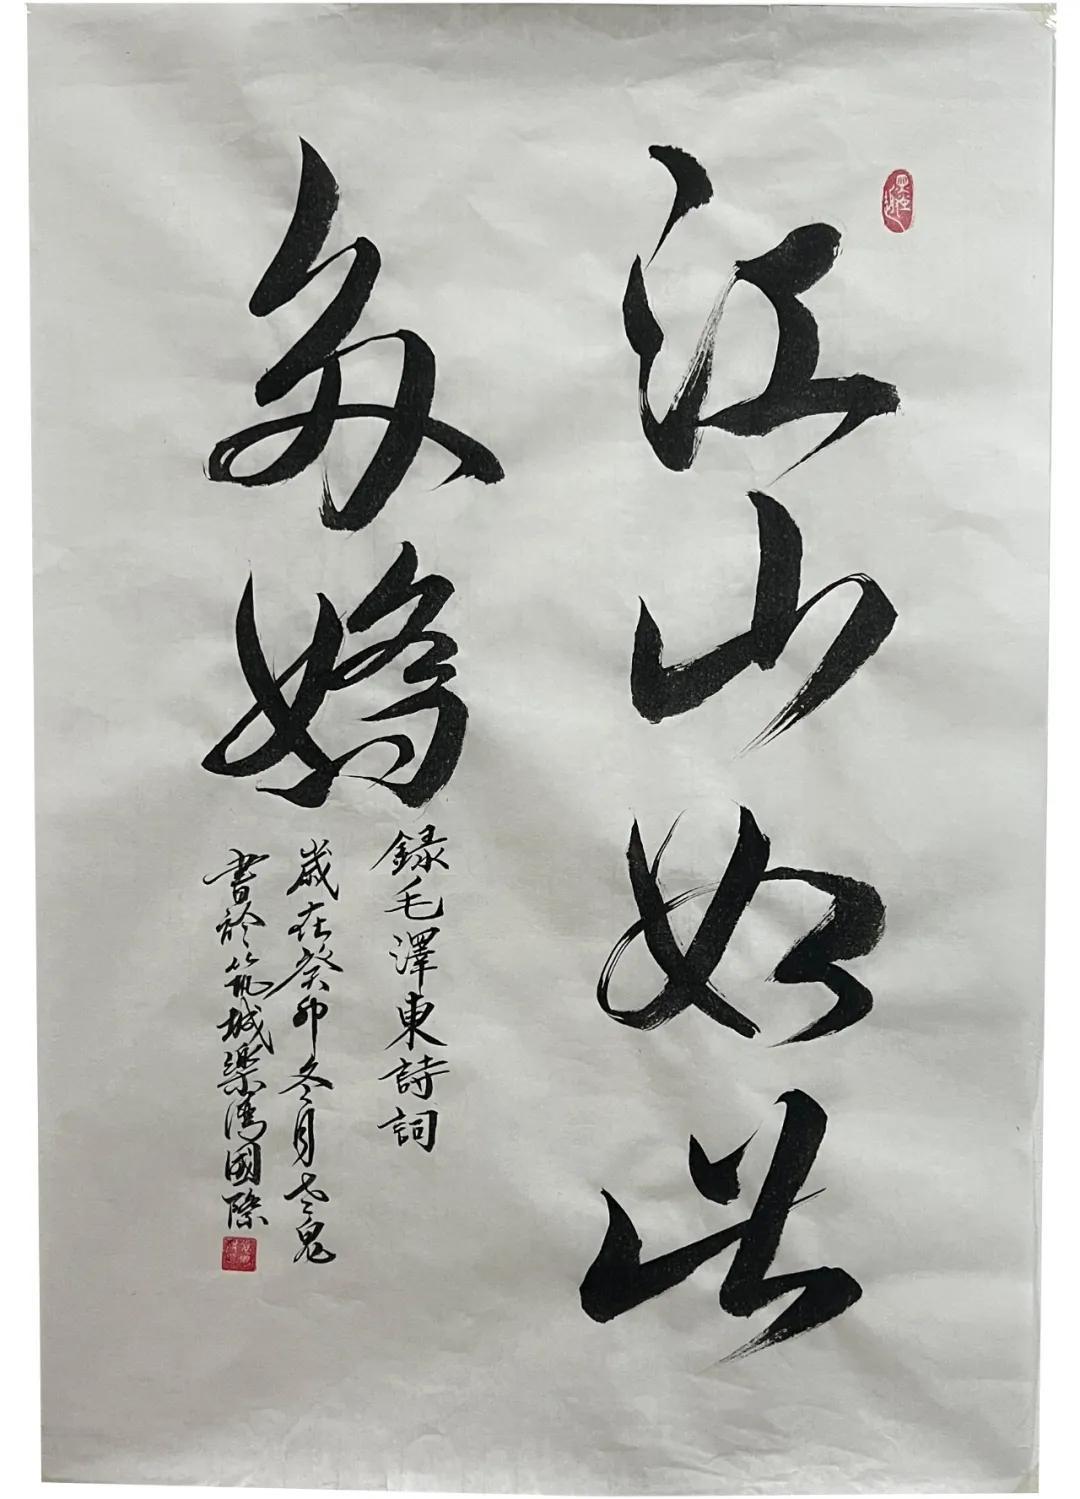 江山如此
多嬌
録毛澤東詩詞
歲在癸卯冬月老鬼
書於筑城樂灣國際